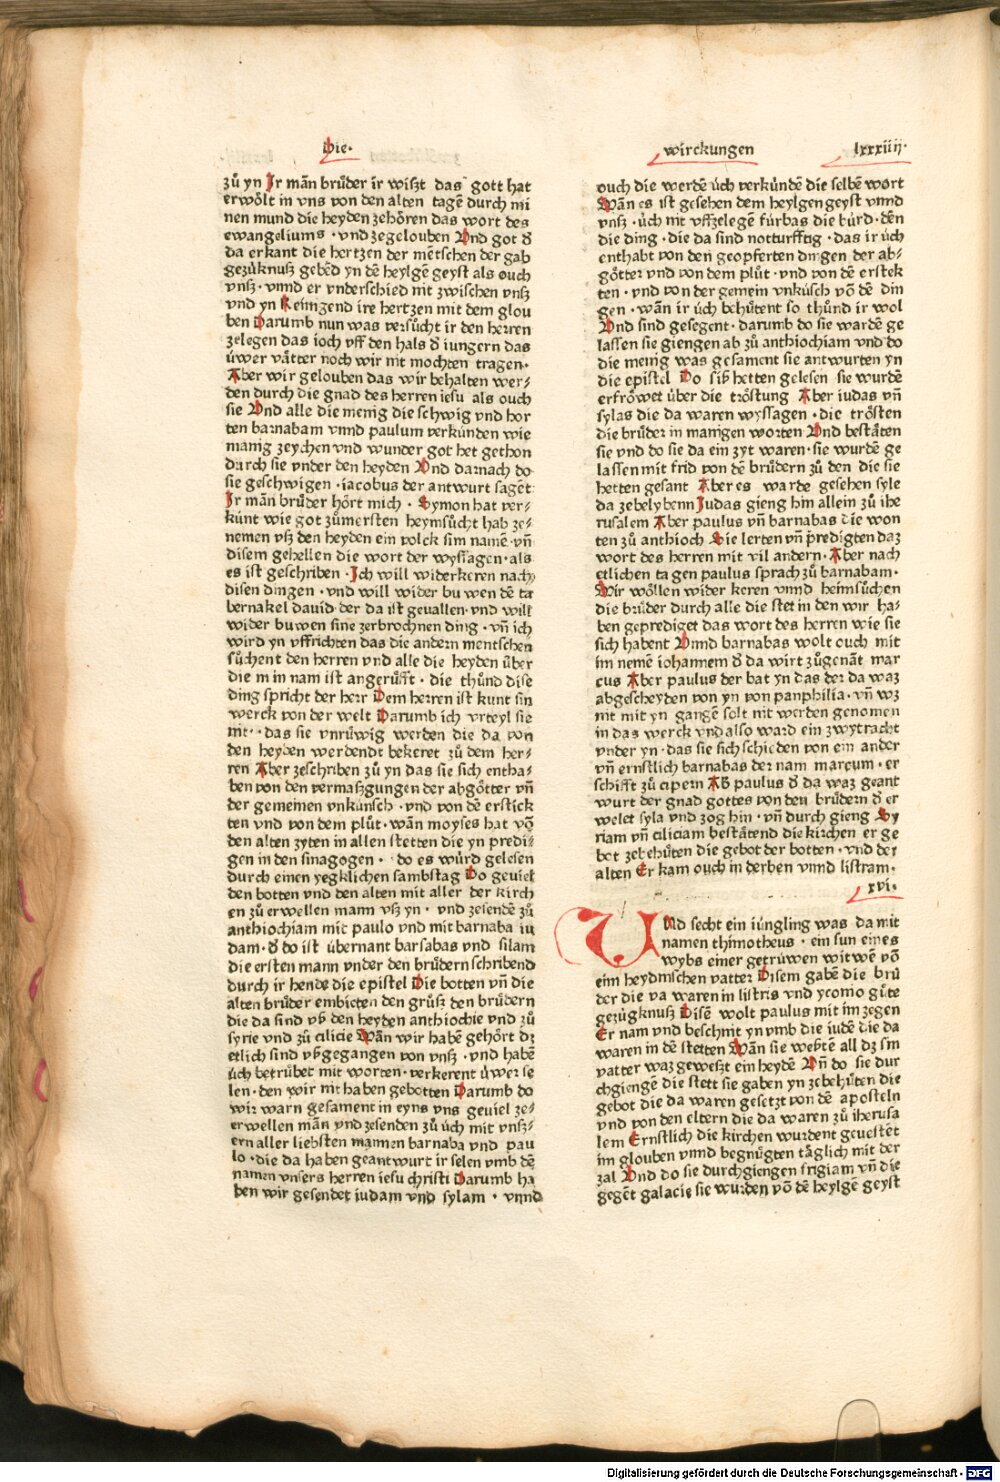 Die·
wirckungen
lxxxiiij·
zů yn Ir mãn brůder ir wiſzt das gott hat
erwôlt in vns von den alten tagẽ durch mi
nen mund die heyden zehôren das wort des
ewangeliums · vnd zegelouben Vnd got d̕
da erkant die hertzen der mẽtſchen der gab
gezůknuſz gebẽd yn dẽ heylgẽ geyſt als ouch
vnſz · vnnd er vnderſchied nit zwiſchen vnſz
vnd yn Reinigend ire hertzen mit dem glou
ben Darumb nun was verſůcht ir den herren
zelegen das ioch vff den hals d̕ iungern das
ůwer våtter noch wir nit mochten tragen·
Aber wir gelouben das wir behalten wer⸗
den durch die gnad des herren ieſu als ouch
ſie Vnd alle die menig die ſchwig vnd hor
ten barnabam vnnd paulum verkůnden wie
manig zeychen vnd wunder got het gethon
durch ſie vnder den heyden Vnd darnach do
ſie geſchwigen · iacobus der antwurt ſagẽt
Ir mãn brůder hôrt mich · Symon hat ver⸗
kůnt wie got zůmerſten heymſůcht hab ze⸗
nemen vſz den heyden ein volck ſim namẽ · vñ
diſem gehellen die wort der wyſſagen · als
es iſt geſchriben · Ich will widerkeren nach
diſen dingen · vnd will wider bu wen dẽ ta
bernakel dauid der da iſt geuallen · vnd will
wider buwen ſine zerbrochnen ding · vñ ich
wird yn vffrichten das die andern mentſchen
ſůchent den herren vnd alle die heyden ůber
die min nam iſt angerůfft · die thůnd diſe
ding ſpricht der herr Dem herren iſt kunt ſin
werck von der welt Darumb ich vrteyl ſie
nit · das ſie vnrůwig werden die da von
den heyden werdendt bekeret zů dem her⸗
ren Aber zeſchriben zů yn das ſie ſich entha⸗
ben von den vermaſzgungen der abgôtter vñ
der gemeinen vnkůnſch · vnd von dẽ erſtick
ten vnd von dem plůt · wãn moyſes hat võ
den alten zyten in allen ſtetten die yn predi⸗
gen in den ſinagogen · do es wůrd geleſen
durch einen yegklichen ſambſtag Do geuiel
den botten vnd den alten mit aller der kirch
en zů erwellen mann vſz yn · vnd zeſendẽ zů
anthiochiam mit paulo vnd mit barnaba iu
dam · d̕ do iſt ůbernant barſabas vnd ſilam
die erſten mann vnder den brůdern ſchribend
durch ir hende die epiſtel Die botten vñ die
alten brůder embieten den grůſz den brůdern
die da ſind vſz den heyden anthiochie vnd zů
ſyrie vnd zů cilicie Wãn wir habẽ gehôrt dz
etlich ſind vſzgegangen von vnſz · vnd habẽ
ůch betrůbet mit worten · verkerent ůwer ſe
len · den wir nit haben gebotten Darumb do
wir warn geſament in eyns vns geuiel ze⸗
erwellen mãn vnd zeſenden zů ůch mit vnſz⸗
ern aller liebſten mannen barnaba vnd pau
lo · die da haben geantwurt ir ſelen vmb dẽ
namen vnſers herren ieſu chriſti Darumb ha
ben wir geſendet iudam vnd ſylam · vnnd
ouch die werdẽ ůch verkůndẽ die ſelbẽ wort
Wãn es iſt geſehen dem heylgen geyſt vnnd
vnſz · ůch nit vffzelegẽ fůrbas die bůrd · dẽn
die ding · die da ſind notturfftig · das ir ůch
enthabt von den geopferten dingen der ab⸗
gôtter vnd von dem plůt · vnd von dẽ erſtek
ten · vnd von der gemein vnkůſch võ dẽ din
gen · wãn ir ůch behůtent ſo thůnd ir wol
Vnd ſind geſegent · darumb do ſie wardẽ ge
laſſen ſie giengen ab zů anthiochiam vnd do
die menig was geſament ſie antwurten yn
die epiſtel Do ſiſz hetten geleſen ſie wurdẽ
erfrôwet ůber die trôſtung Aber iudas vñ
ſylas die da waren wyſſagen · die trôſten
die brůder in manigen worten Vnd beſtåten
ſie vnd do ſie da ein zyt waren · ſie wurdẽ ge
laſſen mit frid von dẽ brůdern zů den die ſie
hetten geſant Aber es warde geſehen ſyle
da zebelybenn Judas gieng hin allein zů ihe
ruſalem Aber paulus vñ barnabas die won
ten zů anthioch Sie lerten vñ predigten daz
wort des herren mit vil andern · Aber nach
etlichen tagen paulus ſprach zů barnabam·
Wir wôllen wider keren vnnd heimſůchen
die brůder durch alle die ſtet in den wir ha⸗
ben geprediget das wort des herren wie ſie
ſich habent Vnnd barnabas wolt ouch mit
im nemẽ iohannem d̕ da wirt zůgenãt mar
cus Aber paulus der bat yn das der da waz
abgeſcheyden von yn von panphilia · vñ wz
nit mit yn gangẽ ſolt nit werden genomen
in das werck vnd alſo ward ein zwytracht
vnder yn · das ſie ſich ſchieden von ein ander
vñ ernſtlich barnabas der nam marcum · er
ſchifft zů cipern Aber paulus d̕ da waz geant
wurt der gnad gottes von den brůdern d̕ er
welet ſyla vnd zog hin · vñ durch gieng Sy
riam vñ ciliciam beſtåtend die kirchen er ge
bot zebehůten die gebot der botten · vnd der
alten Er kam ouch in derben vnnd liſtram·
xvi·
Und ſecht ein iůngling was da mit
namen thimotheus · ein ſun eines
wybs einer getrůwen witwẽ võ
eim heydniſchen vatter Diſem gabẽ die brů
der die da waren in liſtris vnd yconio gůte
gezůgknuſz Diſẽ wolt paulus mit im zegen
Er nam vnd beſchnit yn vmb die iudẽ die da
waren in dẽ ſtetten Wãn ſie weſztẽ all dz ſin
vatter waz geweſzt ein heydẽ Vñ do ſie dur
chgiengẽ die ſtett ſie gaben yn zebehůten die
gebot die da waren geſetzt von dẽ apoſteln
vnd von den eltern die da waren zů iheruſa
lem Ernſtlich die kirchen wurdent geueſtet
im glouben vnnd begnůgten tåglich mit der
zal Vnd do ſie durchgiengen frigiam vñ die
gegẽt galacie ſie wurden võ dẽ heylgẽ geyſt
Digitalisierung gefördert durch die Deutsche Forschungsgemeinschaft - DFG